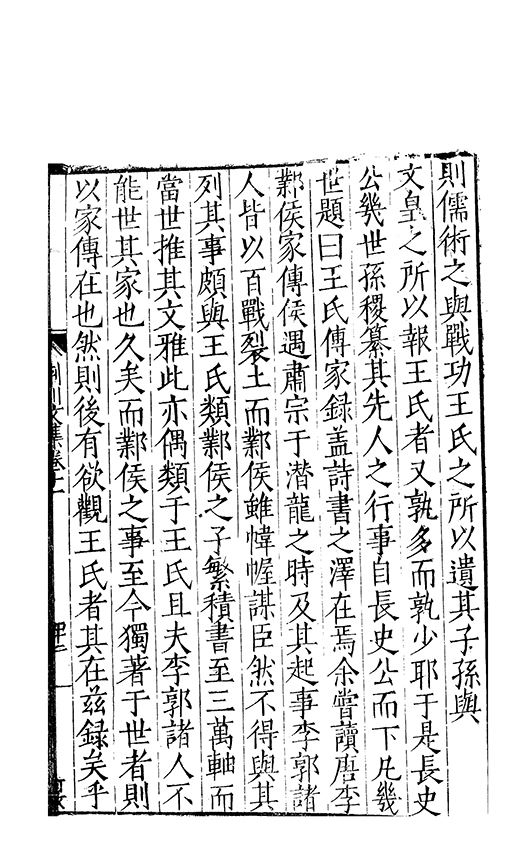 則儒術之與戰功王氏之所以遺其子孫與
文皇之所以報王氏者又孰多而孰少耶于是長史
公幾世孫稷纂其先人之行事自長史公而下凡幾
世題曰王氏傳家録盖詩書之澤在焉余嘗讀唐李
鄴侯家傳侯遇肅宗于潛龍之時及其起事李郭諸
人皆以百戰裂土而鄴侯雖幃幄謀臣然不得與其
列其事頗與王氏類鄴侯之子繁積書至三萬軸而
當世推其文雅此亦偶類于王氏且夫李郭諸人不
能世其家也久矣而鄴侯之事至今獨著于世者則
以家傳在也然則後有欲觀王氏者其在兹録矣乎
荆川文集卷十